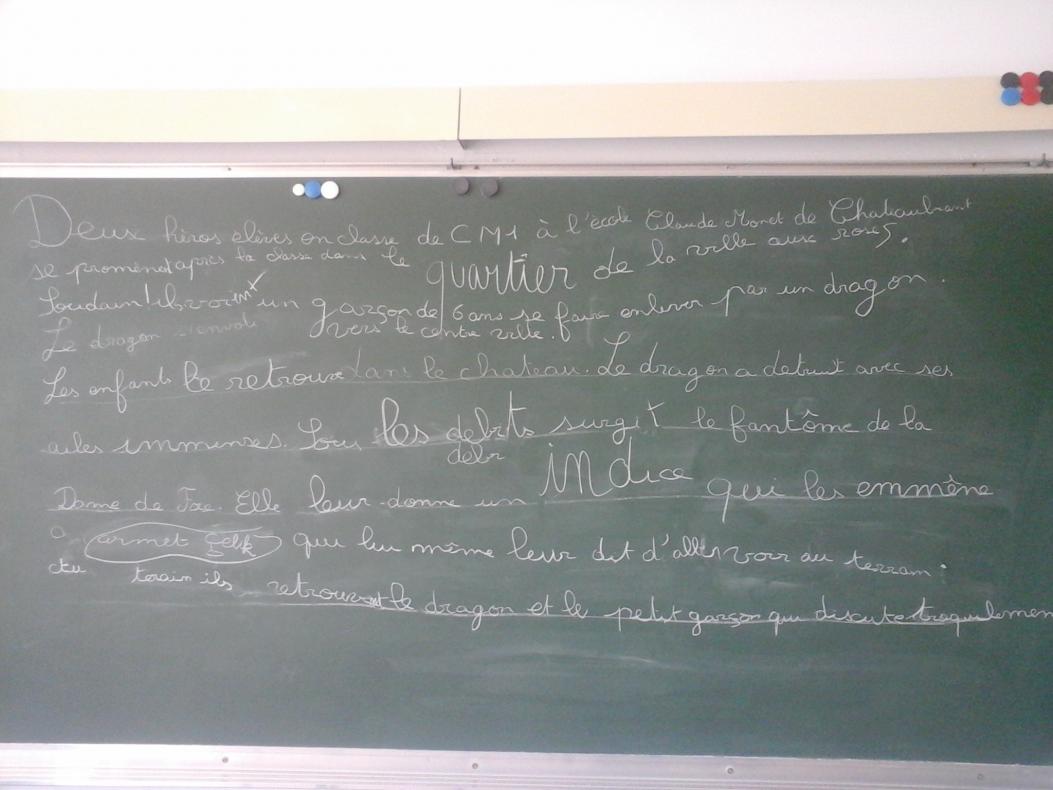 Deux héros élèves en classe de CM1 à l'école Claude Monet de Chateaubriant
se promenet après la classe dans le quartier de la ville aux roses.
Soudain! ils vorint un garçon de 6 ans se faire enlever par un dragon.
Le dragon s'envole vers le centre ville.
Les enfants le retrouve dans le chateau. Le dragon a detruit avec ses
ailes imminses. Sous les debrits surgit le fantôme de la
debr
Dame de Foxe. Elle leur donne un indice qui les emmène
a armet Çelik qui lui même leur dit d'aller voir au terrain.
Au terain ils retrouvent le dragon et le petit garçon qui discute traquilemen